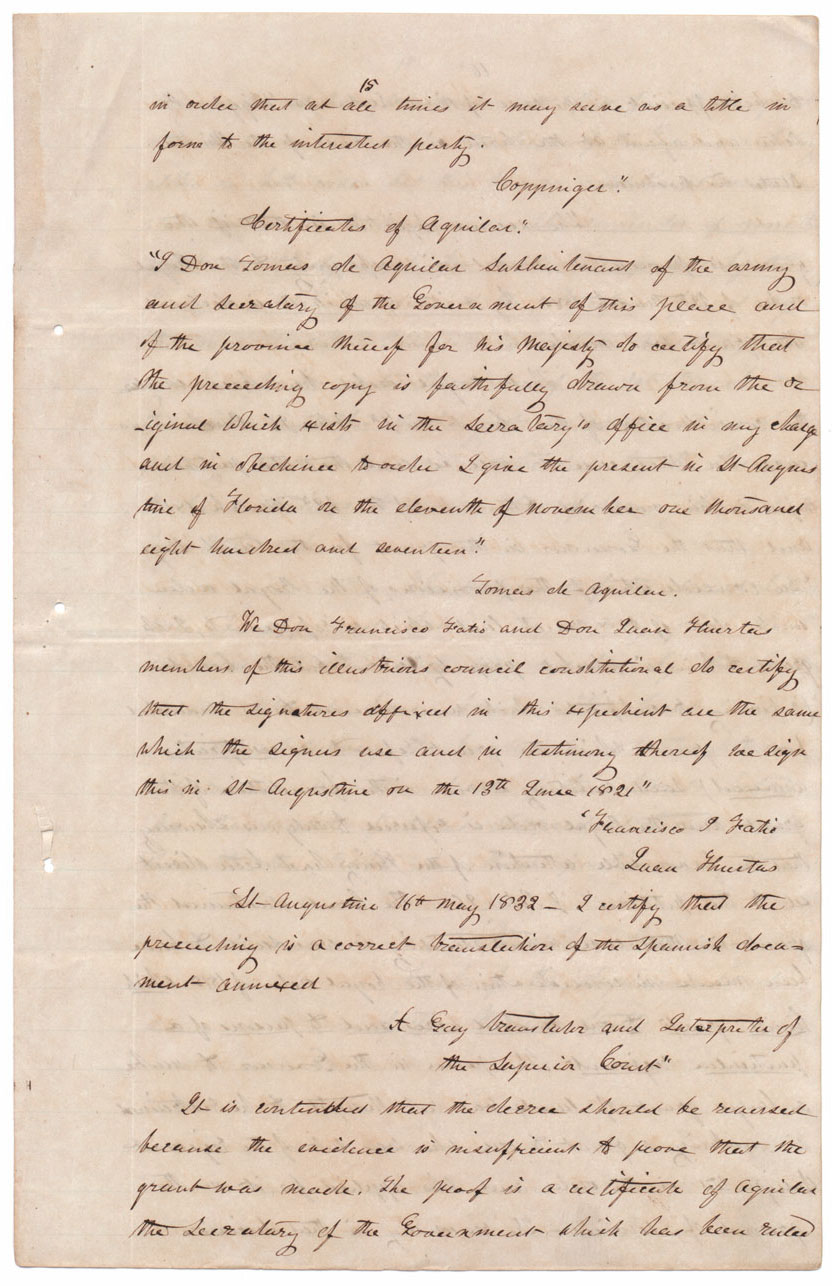 15
in order that at all times it may serve as a title in
form to the interested party.
Coppinger".
Certificates of Aguilar".
"I Don Tomas de Aguilar Sublieutenant of the army
and Secretary of the Government of this place and
of the province thereof for his Majesty do certify that
the preceeding copy is faithfully drawn from the or
-iginal which exists in the Secretary's office in my charge
and in obedience to order I give the present in St Augus
tine of Florida on the eleventh of november one thousand
eight hundred and seventeen".
Tomas de Aguilar.
We Don Francisco Fatio and Don Juan Huertas
members of this illustrious council constitutional do certify
that the signatures affixed in this expedient are the same
which the signers use and in testimony thereof we sign
this in St Augustine on the 13th June 1821"
"Francisco J Fatio
Juan Huertas
"St Augustine 16th May 1832 – I certify that the
preceeding is a correct translation of the Spanish docu-
ment annexed
A Gay translator and Interpreter of
the Superior Court"
It is contended that the decree should be reversed
because the evidence is insufficient to prove that the
grant was made. The proof is a certificate of Aguilar
the Secretary of the Government which has been ruled